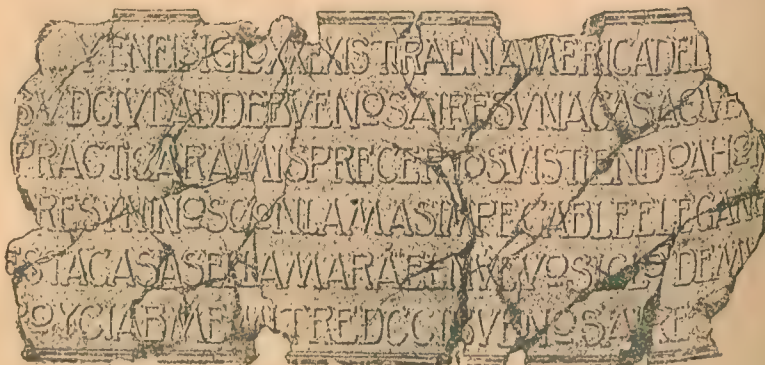 Y EN EL SIGLO XX EXISTIRA EN AMERICA DEL
SVD CIVDAD DE BVENOS AIRES VNA CASA QVE
PRACTICARA MIS PRECEPTOS VISTIENDO A HO
RES Y NINOS CON LA MAS IMPECABLE ELEGAN
ESTA CASA SE LLAMARA EL NVEVO SIGLO DE MV
O Y CIA BME MITRE BVENOS AIRE